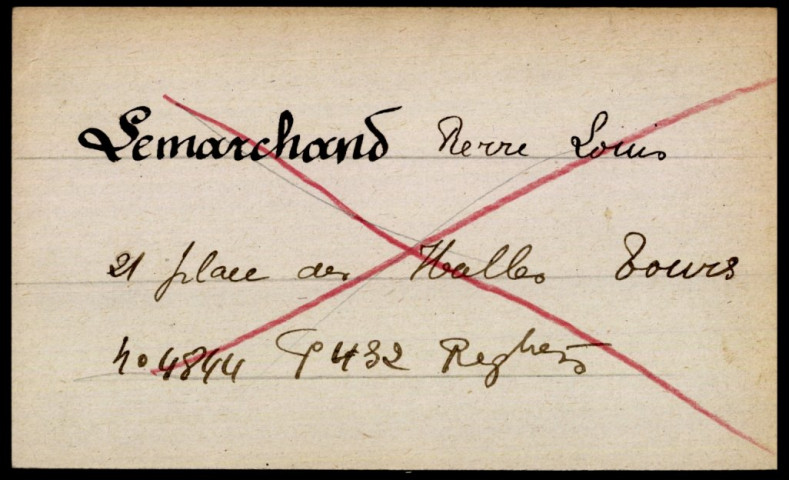 Lemarchand Pierre Louis
21 place des Halles Tours
no 4844 P 432 Reghe 5